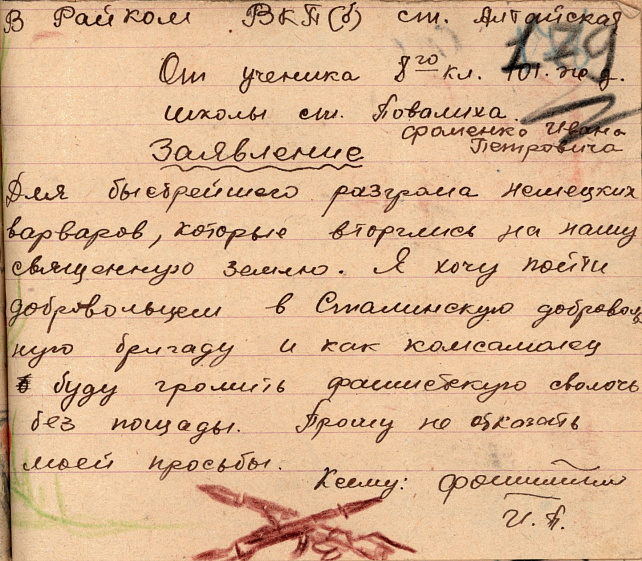 В Райком ВКП(б) ст. Алтайская
179
От ученика 8го кл. 101. ж.д.
школы ст. Повалиха.
Фоменко Ивана
Петровича
Заявление
Для быстрейшего разгрома немецких
варваров, которые вторглись на нашу
священную землю. Я хочу пойти
добровольцем в Сталинскую доброволь
ную бригаду и как комсамолец
буду громить фашистскую сволочь
без пощады. Прошу не отказать
моей просьбы.
К сему:
И.П.